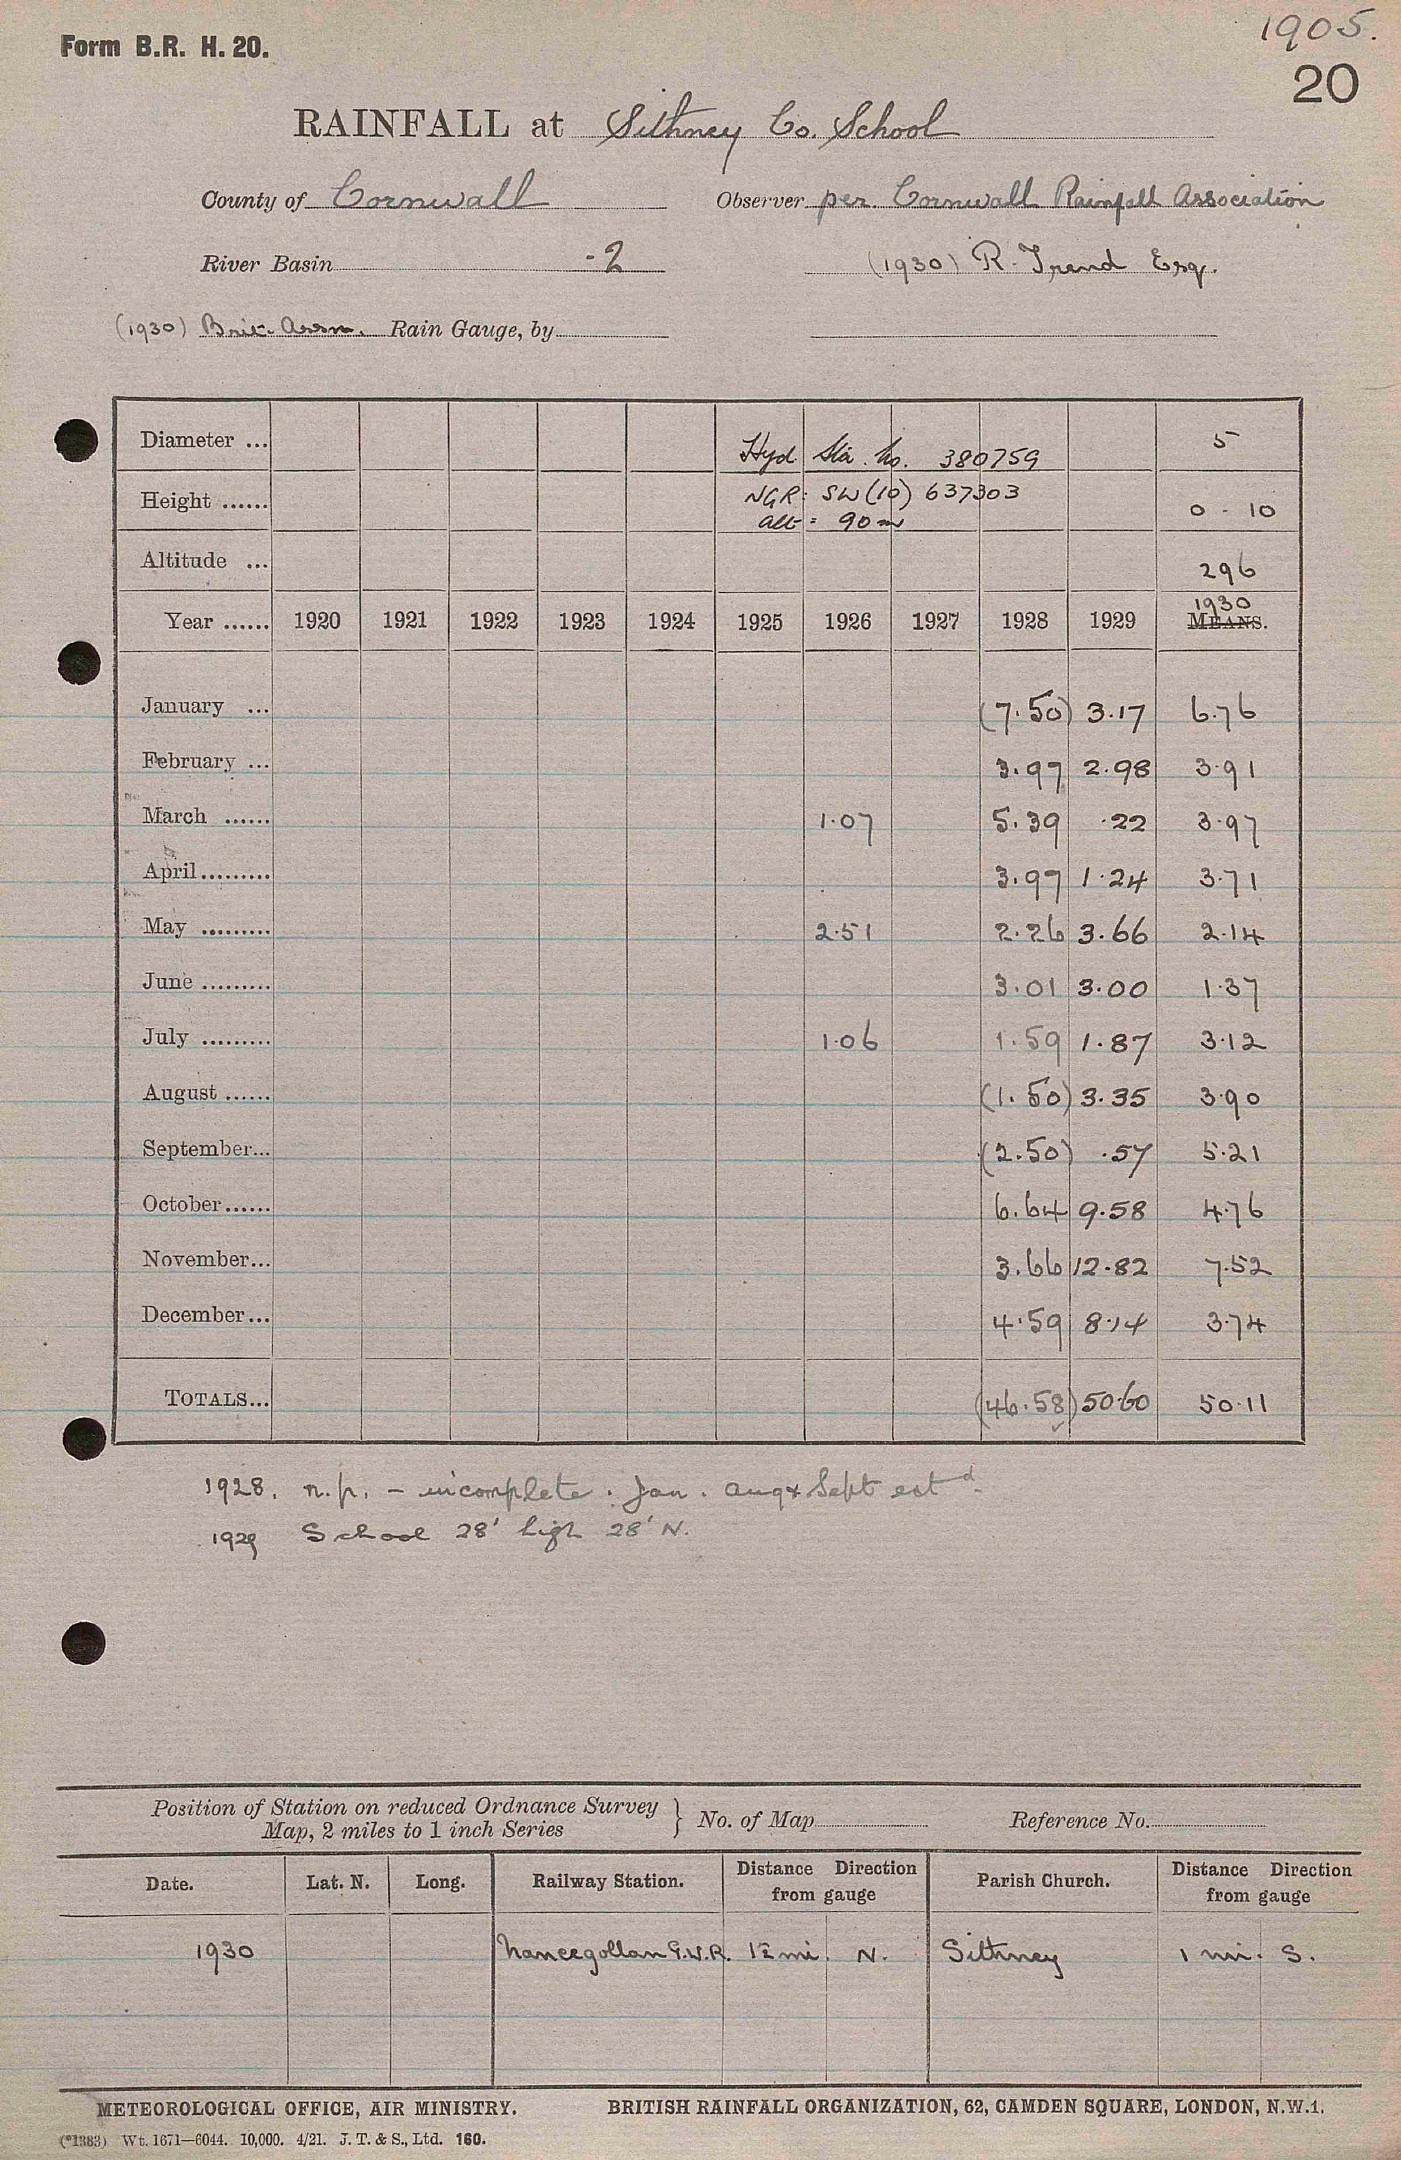 1905.
Form B.R. H. 20.
20
RAINFALL at Sithney Co. School
County of Cornwall Observer per Cornwall Rainfall Association
River Basin -2 (1930) R. Trend Esq.
(1930) Brit. Assn. Rain Gauge, by
Diameter ... Hyd. Sta. No. 380759 5
Height ...... NGR: SW (10) 637303 0 - 10
alt = 90m
Altitude ... 296
1930
Year ...... 1920 1921 1922 1923 1924 1925 1926 1927 1928 1929 MEANS.
January ... (7.50) 3.17 6.76
February ... 3.97 2.98 3.91
March ...... 1.07 5.39 .22 3.97
April ......... 3.97 1.24 3.71
May ......... 2.51 2.26 3.66 2.14
June ......... 3.01 3.00 1.37
July ......... 1.06 1.59 1.87 3.12
August ...... (1.50) 3.35 3.90
September... (2.50) .57 5.21
October...... 6.64 9.58 4.76
November... 3.66 12.82 7.52
December... 4.59 8.14 3.74
TOTALS... (46.58) 50.60 50.11
1928. n.p. - incomplete. Jan. Aug & Sept estd.
1929 School 28' high 28' N.
Position of Station on reduced Ordnance Survey
Map, 2 miles to 1 inch Series } No. of Map Reference No.
Date. Lat. N. Long. Railway Station. Distance Direction from gauge Parish Church. Distance Direction from gauge
1930 Nancegollan G.W.R. 1½ mi. N. Sithney 1 mi. S.
METEOROLOGICAL OFFICE, AIR MINISTRY. BRITISH RAINFALL ORGANIZATION, 62, CAMDEN SQUARE, LONDON, N.W.1.
(*1383) Wt. 1671—6044. 10,000. 4/21. J. T. & S., Ltd. 160.